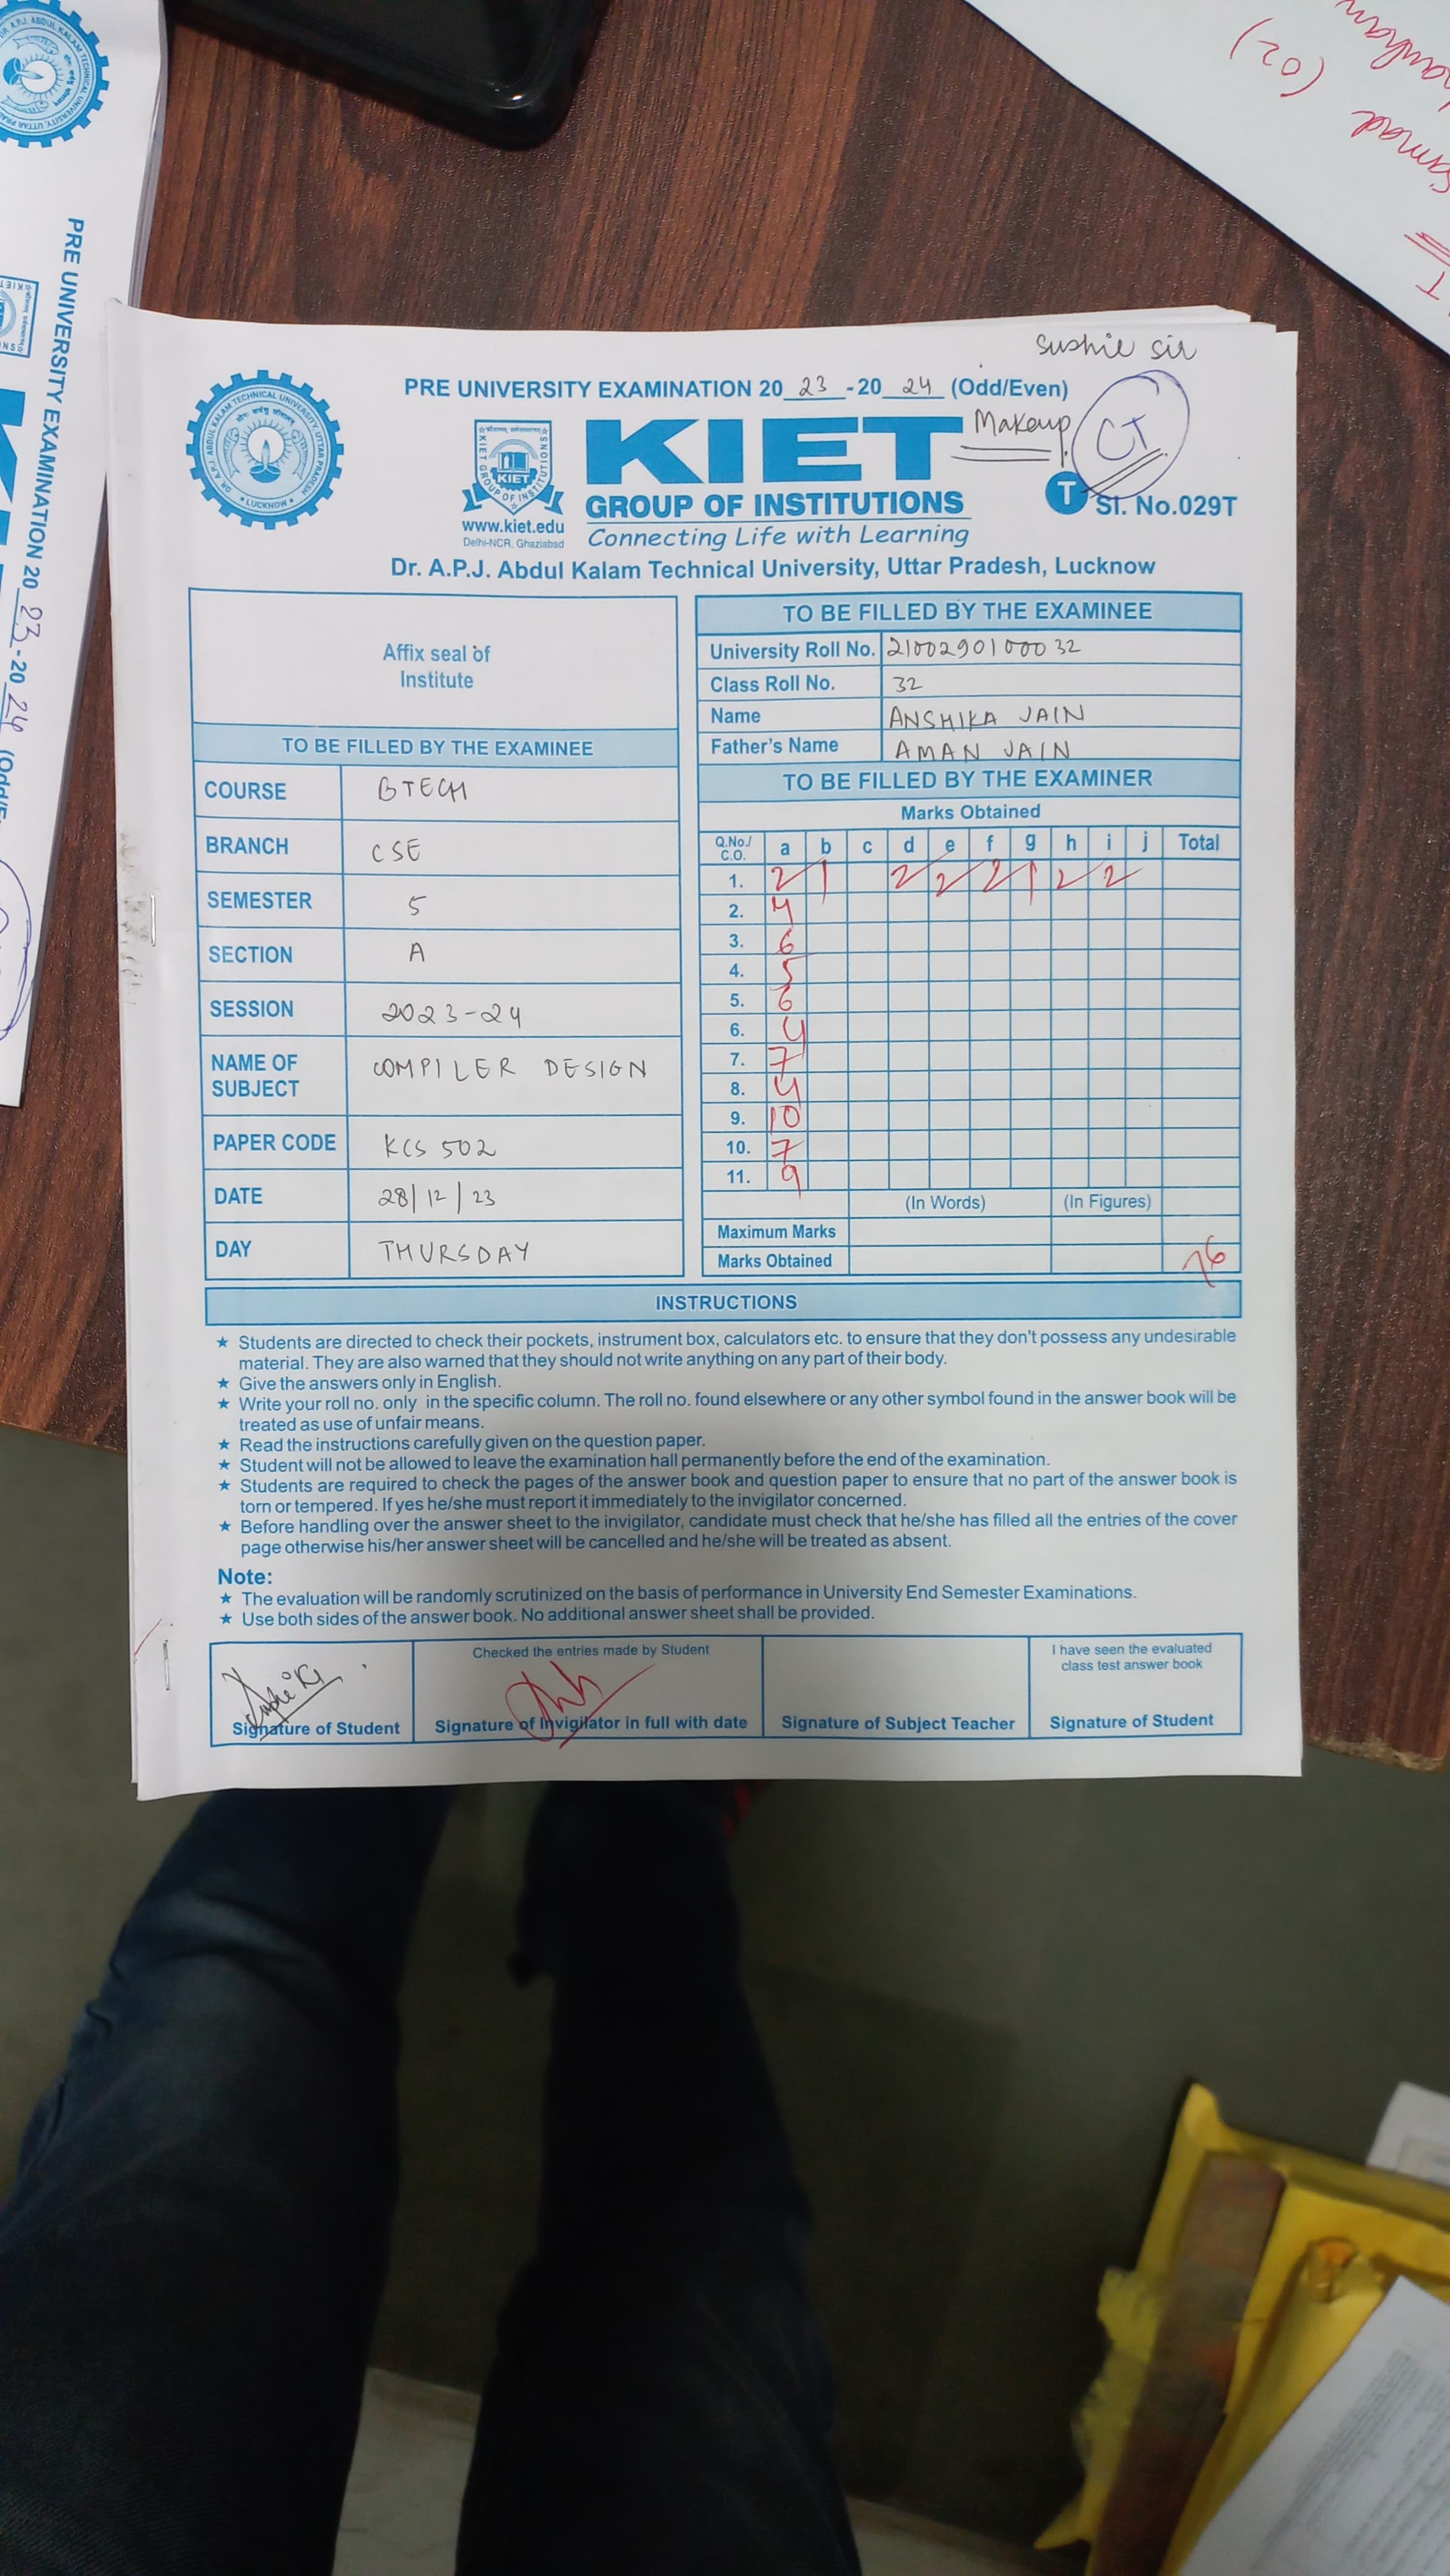 sushil sir
PRE UNIVERSITY EXAMINATION 20 23 -20 24 (Odd/Even)
Makeup
CT
KIET
GROUP OF INSTITUTIONS
Connecting Life with Learning
www.kiet.edu
Delhi-NCR, Ghaziabad
T Sl. No.029T
Dr. A.P.J. Abdul Kalam Technical University, Uttar Pradesh, Lucknow
Affix seal of
Institute
TO BE FILLED BY THE EXAMINEE
COURSE BTECH
BRANCH CSE
SEMESTER 5
SECTION A
SESSION 2023-24
NAME OF SUBJECT COMPILER DESIGN
PAPER CODE KCS 502
DATE 28/12/23
DAY THURSDAY
TO BE FILLED BY THE EXAMINEE
University Roll No. 2100290100032
Class Roll No. 32
Name ANSHIKA JAIN
Father's Name AMAN JAIN
TO BE FILLED BY THE EXAMINER
Marks Obtained
Q.No./ C.O. a b c d e f g h i j Total
1. 2 1 2 2 2 1 2 2
2. 4
3. 6
4. 5
5. 6
6. 4
7. 7
8. 4
9. 10
10. 7
11. 9
(In Words) (In Figures)
Maximum Marks
Marks Obtained 76
INSTRUCTIONS
★ Students are directed to check their pockets, instrument box, calculators etc. to ensure that they don't possess any undesirable
material. They are also warned that they should not write anything on any part of their body.
★ Give the answers only in English.
★ Write your roll no. only in the specific column. The roll no. found elsewhere or any other symbol found in the answer book will be
treated as use of unfair means.
★ Read the instructions carefully given on the question paper.
★ Student will not be allowed to leave the examination hall permanently before the end of the examination.
★ Students are required to check the pages of the answer book and question paper to ensure that no part of the answer book is
torn or tempered. If yes he/she must report it immediately to the invigilator concerned.
★ Before handling over the answer sheet to the invigilator, candidate must check that he/she has filled all the entries of the cover
page otherwise his/her answer sheet will be cancelled and he/she will be treated as absent.
Note:
★ The evaluation will be randomly scrutinized on the basis of performance in University End Semester Examinations.
★ Use both sides of the answer book. No additional answer sheet shall be provided.
Signature of Student
Checked the entries made by Student
Signature of Invigilator in full with date
Signature of Subject Teacher
I have seen the evaluated
class test answer book
Signature of Student
PRE UNIVERSITY EXAMINATION 20 23 -20 24 (Odd/E
(02)